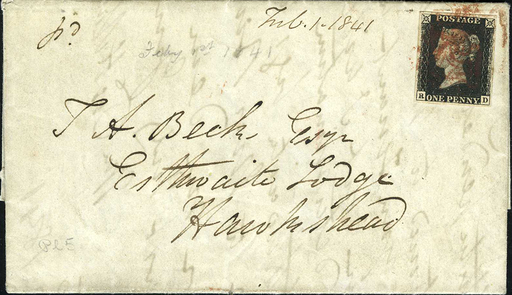 pd
Feb. 1. 1841
Feby 1st 1841
POSTAGE
R ONE PENNY D
T A. Beck Esqr
Esthwaite Lodge
Hawkshead